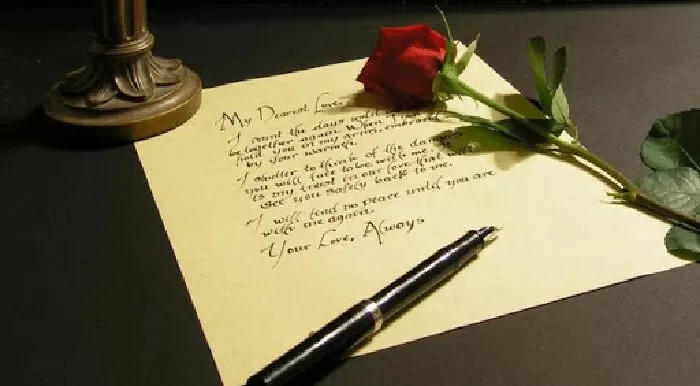 My Dearest Love,
I count the days until
be together again. When I
hold you in my arms, embraced
by your warmth.
I shudder to think of the dangers
you will face to be with me. It
is my trust in our love that will
see you safely back to me.
I will find no peace until you are
with me again.
Your Love, Always